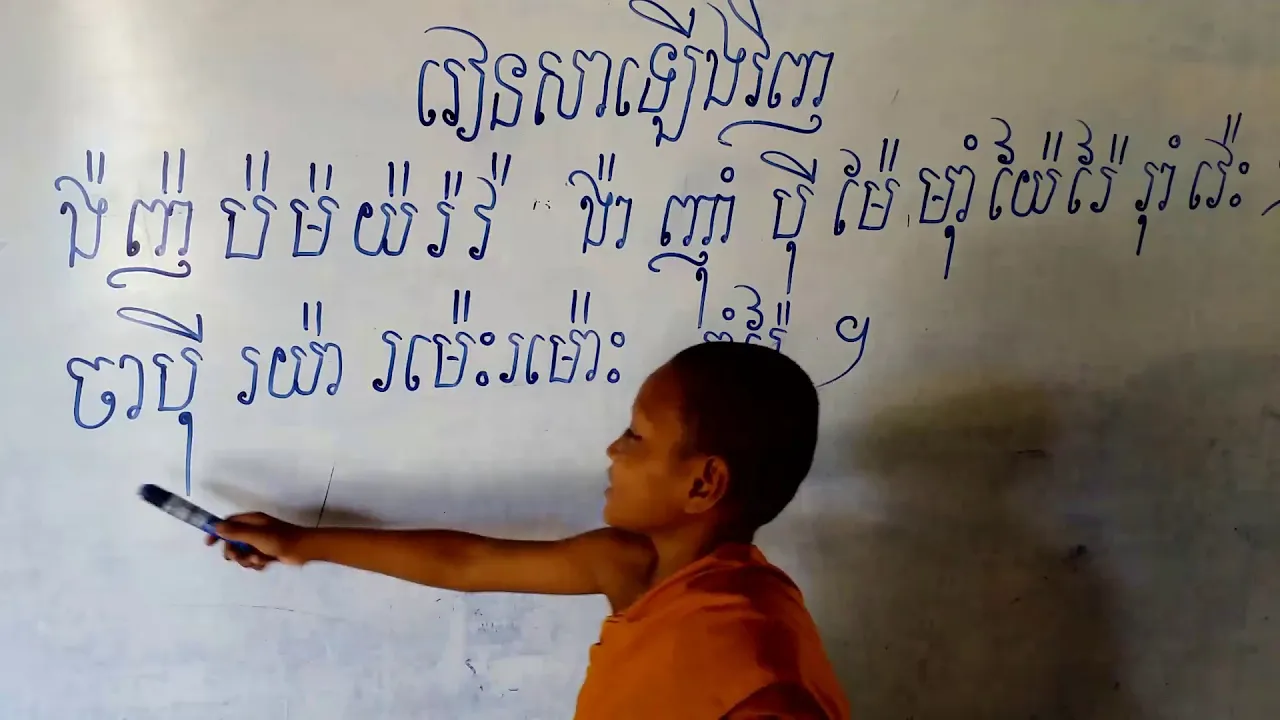 រៀនសាឡើងវិញ
ង៉ ញ៉ ប៉ ម៉ យ៉ រ៉ វ៉ ង៉ា ញ៉ាំ ប៉ី ម៉ែ ម៉ាំ យ៉ែ រ៉ែ រ៉ាំ វ៉េះ
ចាប៉ី រយ៉ា រម៉េះរម៉ោះ ។